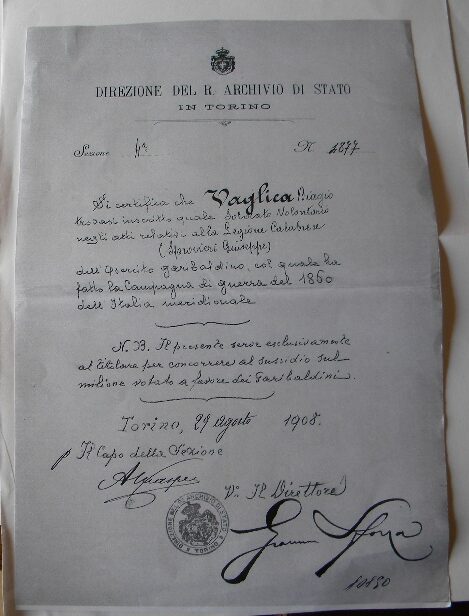 DIREZIONE DEL R. ARCHIVIO DI STATO
IN TORINO
Sezione 4ª N. 4877
Si certifica che Vaglica Biagio
trovasi inscritto quale Soldato Volontario
negli atti relativi alla Legione Calabrese
(Sprovieri Giuseppe)
dell'Esercito garibaldino, col quale ha
fatto la Campagna di guerra del 1860
dell'Italia meridionale
N.B. Il presente serve esclusivamente
al titolare per concorrere al sussidio sul
milione votato a favore dei Garibaldini.
Torino, 29 agosto 1908.
Il Capo della Sezione
V° Il Direttore